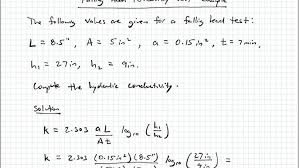 Falling Head Permeability Test, Example
The following values are given for a falling head test:
L = 8.5", A = 5 in², a = 0.15 in², t = 7 min,
h₁ = 27 in, h₂ = 9 in.
Compute the hydraulic conductivity.
Solution
k = 2.303 aL/At log₁₀ (h₁/h₂)
k = 2.303 (0.15 in²)(8.5") log₁₀ (27 in/9 in) =